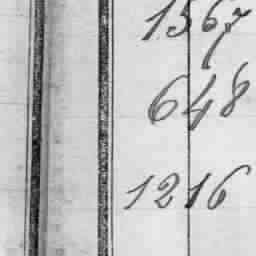 1567
648
1216